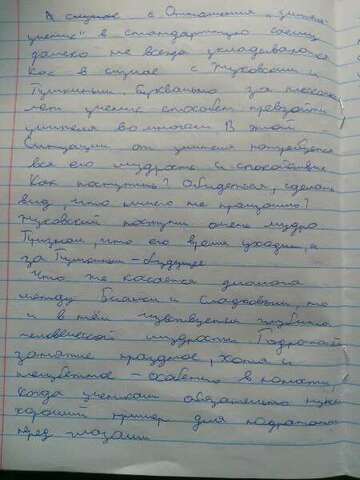 А случае с Отношения "учитель
ученик" в стандартную схему
далеко не всегда укладываются
Как в случае с Жуковским и
Пушкиным. Буквально за несколько
лет ученик способен превзойти
учителя во многом В этой
ситуации от учителя потребуется
вся его мудрость и спокойствие
Как поступить? Обидеться, сделать
вид, что ничего не произошло?
Жуковский поступил очень мудро
Признал, что его время уходит, и
за Пушкиным - будущее
Что же касается диалога
между Бианки и Сладковым, то
и в нём чувствуется глубина
человеческой мудрости Подражание
занятие праздное, хотя и
- особенно в
когда ученикам обязательно нужен
хороший пример для подражания
перед глазами